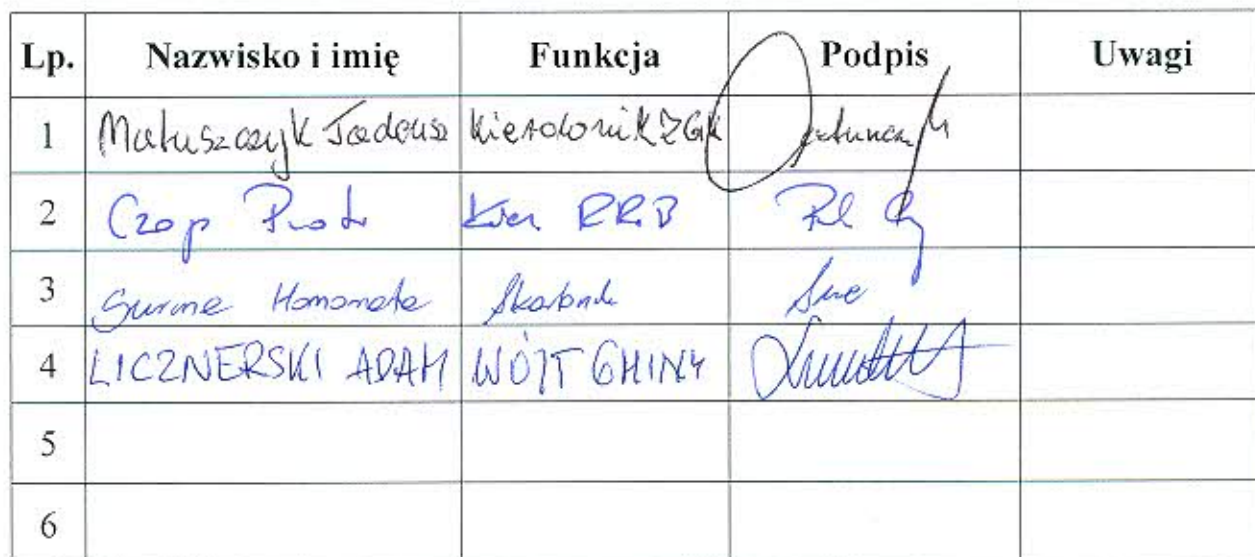 Lp. Nazwisko i imię Funkcja Podpis Uwagi
1 Matuszczyk Tadeusz Kierownik ZGK
2 Czop Piotr Kier. RRB
3 Surma Skarbnik
4 LICZNERSKI ADAM WÓJT GMINY
5
6